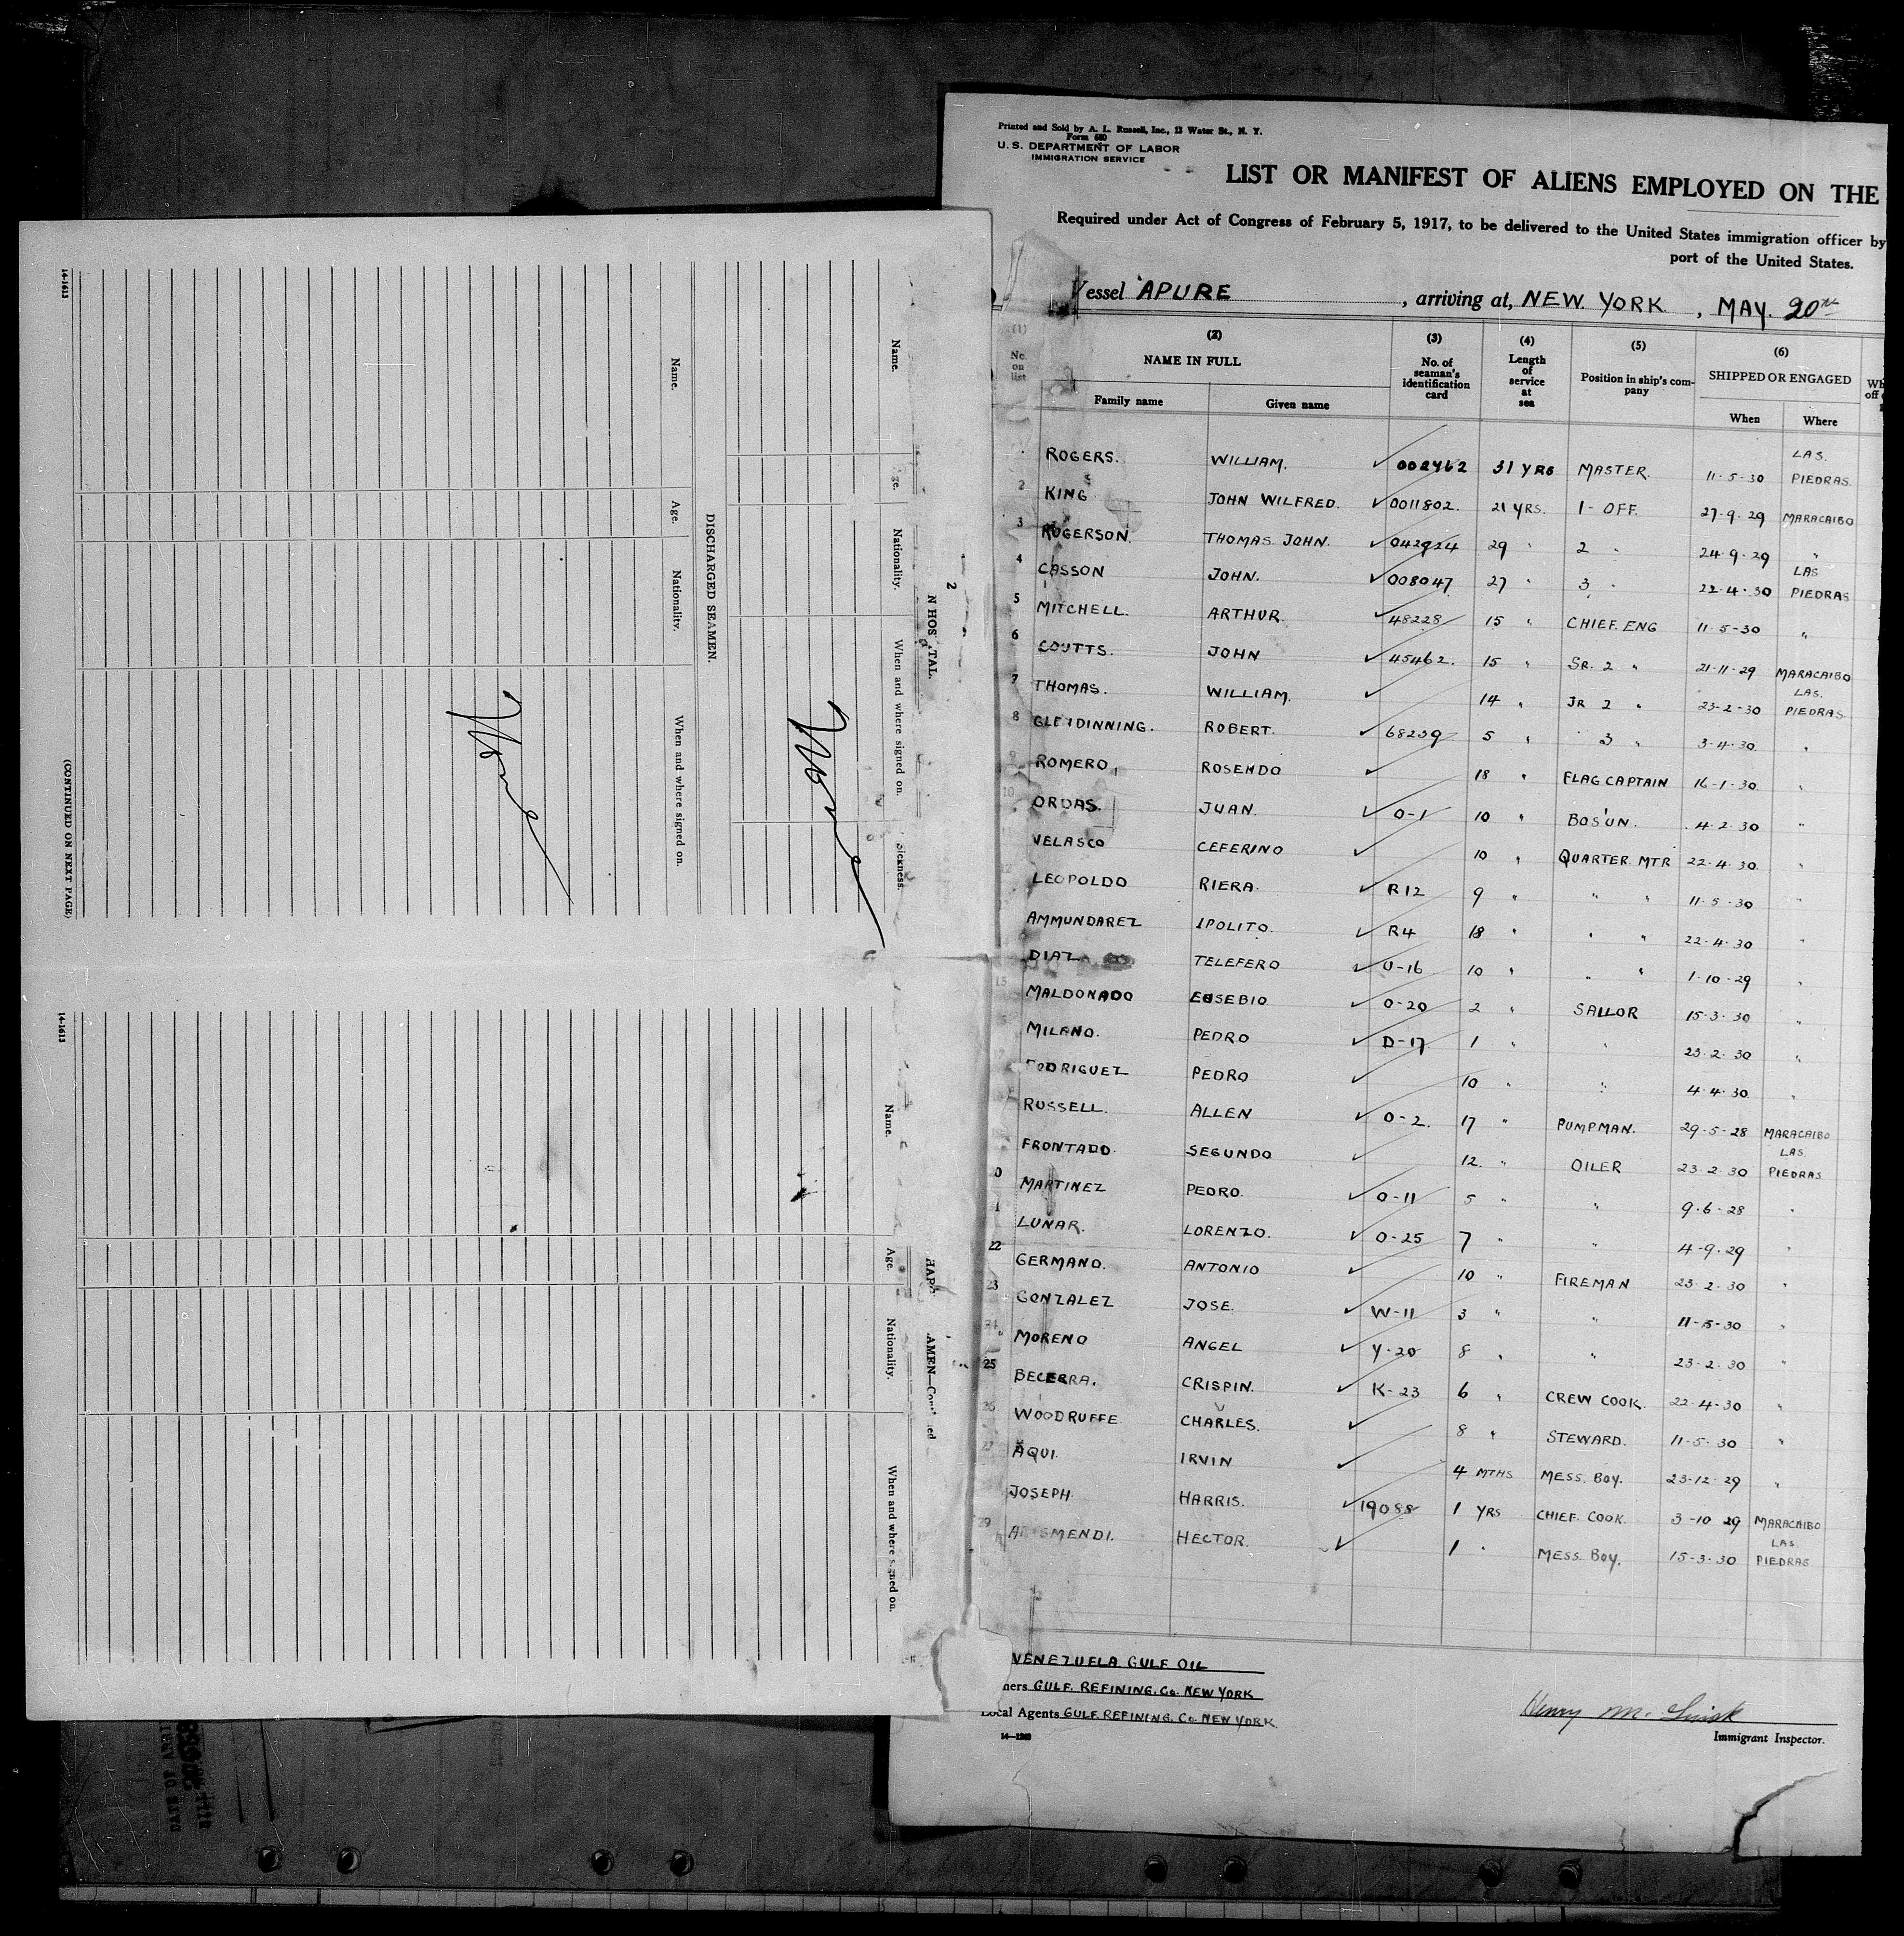 Printed and Sold by A. L. Russell, Inc., 13 Water St., N. Y.
Form 680
U. S. DEPARTMENT OF LABOR
IMMIGRATION SERVICE
LIST OR MANIFEST OF ALIENS EMPLOYED ON THE
Required under Act of Congress of February 5, 1917, to be delivered to the United States immigration officer by
port of the United States.
Vessel APURE, arriving at, NEW YORK, MAY. 20TH
(1) (2) (3) (4) (5) (6)
No. on list NAME IN FULL No. of seaman's identification card Length of service at sea Position in ship's company SHIPPED OR ENGAGED
Family name Given name When Where
ROGERS. WILLIAM. 002462 31 YRS MASTER. 11-5-30 LAS. PIEDRAS.
2 KING JOHN WILFRED. 0011802. 21 YRS. 1- OFF. 27-9-29 MARACAIBO
3 ROGERSON. THOMAS JOHN. 042924 29 " 2 " 24-9-29 "
4 CASSON JOHN. 008047 27 " 3 " 22-4-30 LAS PIEDRAS
5 MITCHELL. ARTHUR 48228 15 " CHIEF. ENG 11-5-30 "
6 COUTTS. JOHN 45462. 15 " SR. 2 " 21-11-29 MARACAIBO
7 THOMAS. WILLIAM. 14 " JR 2 " 23-2-30 LAS. PIEDRAS
8 GLENDINNING. ROBERT. 68239 5 " 3 " 3-4-30 "
9 ROMERO, ROSENDO 18 " FLAG CAPTAIN 16-1-30 "
10 ORDAS. JUAN. O-1 10 " BOS'UN. 4-2-30 "
VELASCO CEFERINO 10 " QUARTER. MTR 22-4-30 "
12 LEOPOLDO RIERA. R12 9 " " " 11-5-30 "
AMMUNDAREZ IPOLITO. R4 18 " " " 22-4-30 "
DIAZ TELEFERO U-16 10 " " " 1-10-29 "
15 MALDONADO EUSEBIO O-20 2 " SAILOR 15-3-30 "
MILANO. PEDRO D-17 1 " " 23-2-30 "
RODRIGUEZ PEDRO 10 " " 4-4-30 "
RUSSELL. ALLEN O-2. 17 " PUMPMAN. 29-5-28 MARACAIBO
FRONTADO. SEGUNDO 12. " OILER 23-2-30 LAS PIEDRAS
0 MARTINEZ PEDRO. O-11 5 " " 9-6-28 "
1 LUNAR. LORENZO. O-25 7 " " 4-9-29 "
22 GERMANO. ANTONIO 10 " FIREMAN 23-2-30 "
23 GONZALEZ JOSE. W-11 3 " " 11-5-30 "
24 MORENO ANGEL Y-20 8 " " 23-2-30 "
25 BECERRA. CRISPIN. K-23 6 " CREW COOK. 22-4-30 "
26 WOODRUFFE CHARLES. 8 " STEWARD. 11-5-30 "
27 AQUI. IRVIN 4 MTHS MESS. BOY. 23-12-29 "
JOSEPH HARRIS. 19088 1 YRS CHIEF. COOK. 3-10-29 MARACAIBO
29 HECTOR. 1 " MESS. BOY. 15-3-30 LAS. PIEDRAS
VENEZUELA GULF OIL
ners GULF. REFINING. Co. NEW YORK
Local Agents GULF. REFINING. Co. NEW YORK
14—1240
Henry M.
Immigrant Inspector.
2
N HOS TAL.
Name. ge. Nationality. When and where signed on. Sickness.
DISCHARGED SEAMEN.
Name. Age. Nationality. When and where signed on.
14-1613
(CONTINUED ON NEXT PAGE)
AMEN—Cont ed
Name. Age. Nationality. When and where signed on.
14-1613